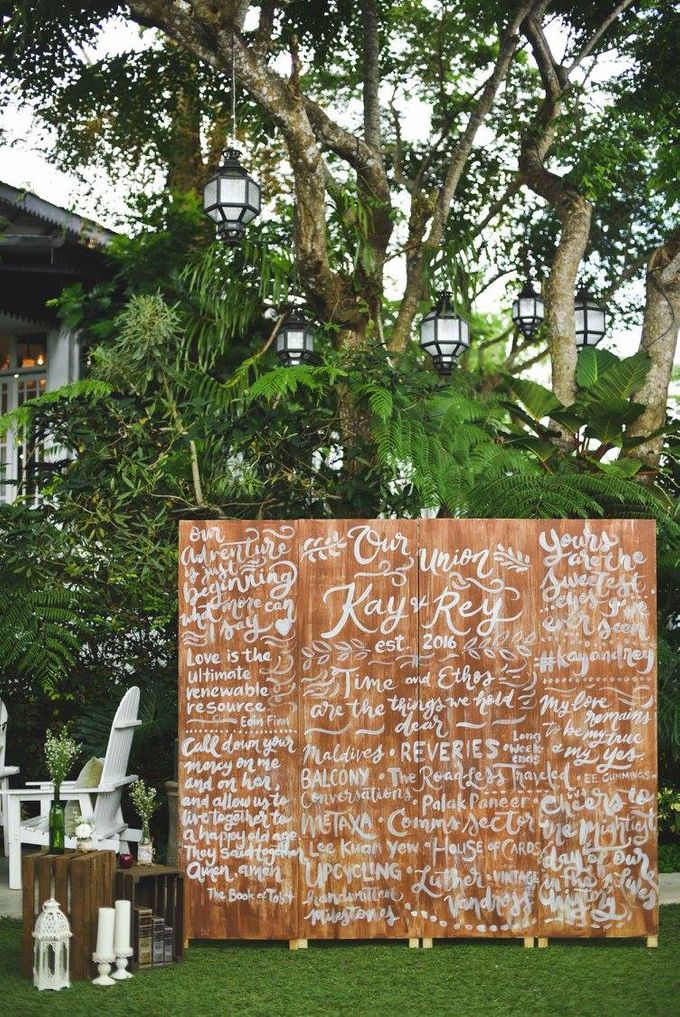 our
Adventure
is just
beginning
what more can
I say
Love is the
ultimate
renewable
resource.
Call down your
mercy on me
and on her,
and allow us to
live together to
a happy old age
They said together
Amen, amen
The Book of Tobit
Our Union
Kay & Rey
est. 2016
Time and Ethos
are the things we hold
dear
Maldives · REVERIES · Long
week
ends
BALCONY · The Road Less Traveled
Conversations · Palak Paneer
METAXA · Comms sector
Lee Kuan Yew · HOUSE OF CARDS
UPCYCLING · Luther · VINTAGE
handwritten Vandross
milestones
Yours
are the
sweetest
eyes I've
ever seen
#kayandrey
My love
remains
to be my true
& my yes.
EE CUMMINGS
Cheers to
the mightiest
day of our
lives